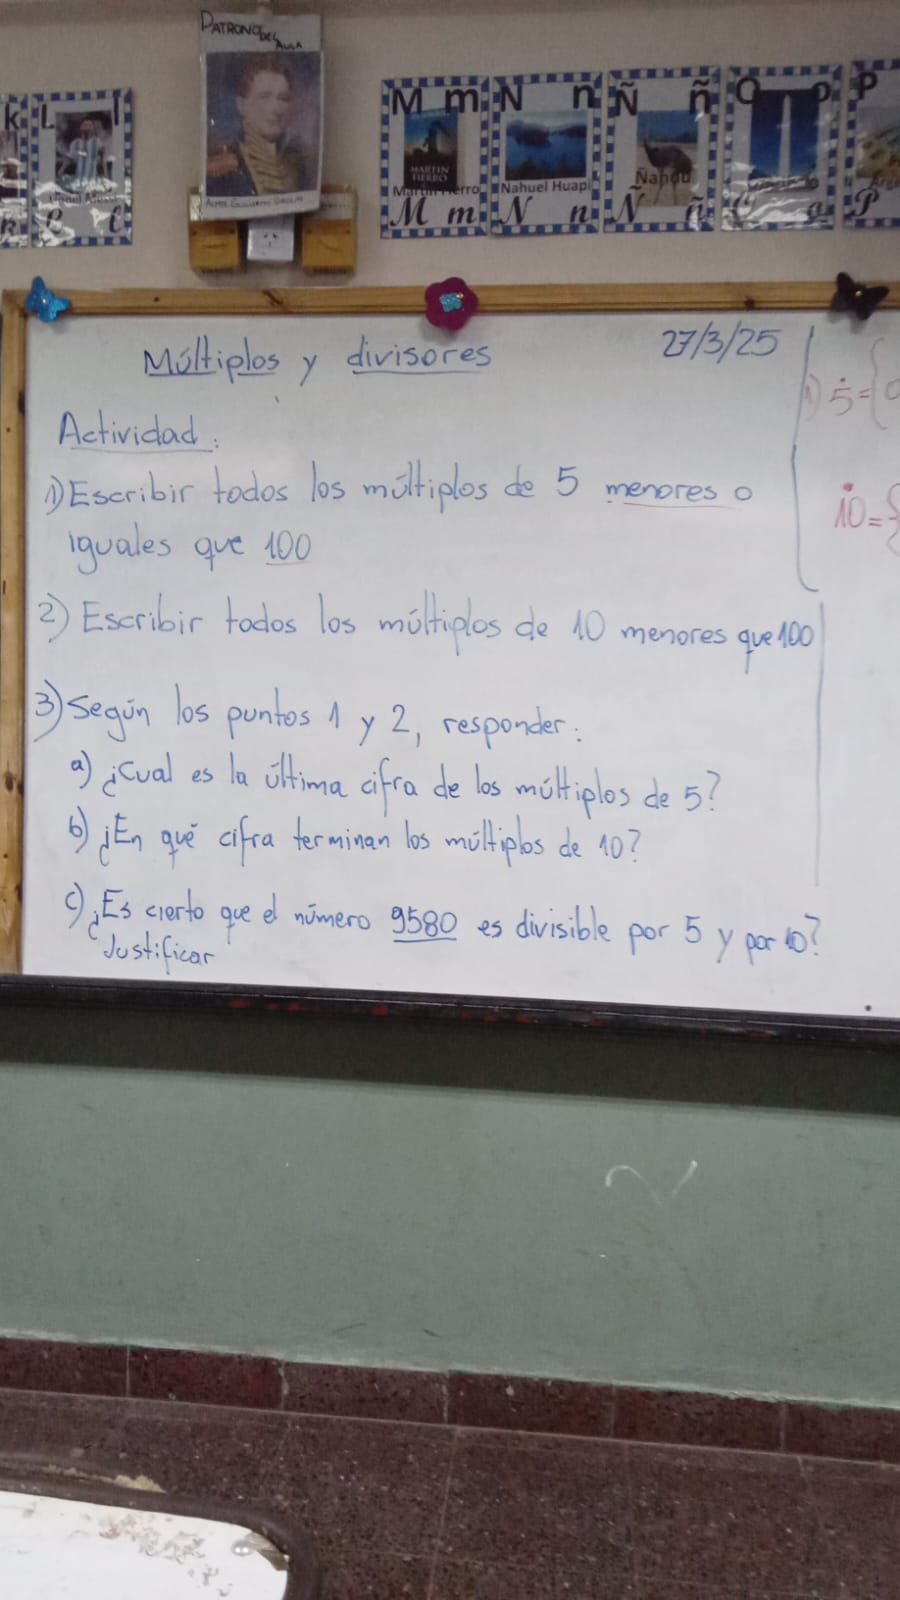 PATRONO DEL
AULA
k L l
M m N n Ñ ñ O o P
MARTIN
FIERRO
Nahuel Huapi
Ñandú
k l M m N n Ñ ñ o P
Múltiplos y divisores
27/3/25
Actividad:
1) Escribir todos los múltiplos de 5 menores o
iguales que 100
2) Escribir todos los múltiplos de 10 menores que 100
3) Según los puntos 1 y 2, responder:
a) ¿Cual es la última cifra de los múltiplos de 5?
b) ¿En qué cifra terminan los múltiplos de 10?
c) ¿Es cierto que el número 9580 es divisible por 5 y por 10?
Justificar
1) 5̇ = {0
1̇0 = {